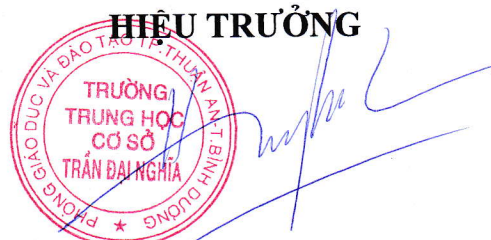 HIỆU TRƯỞNG
PHÒNG GIÁO DỤC VÀ ĐÀO TẠO TP.THUẬN AN-T.BÌNH DƯƠNG
TRƯỜNG
TRUNG HỌC
CƠ SỞ
TRẦN ĐẠI NGHĨA
★